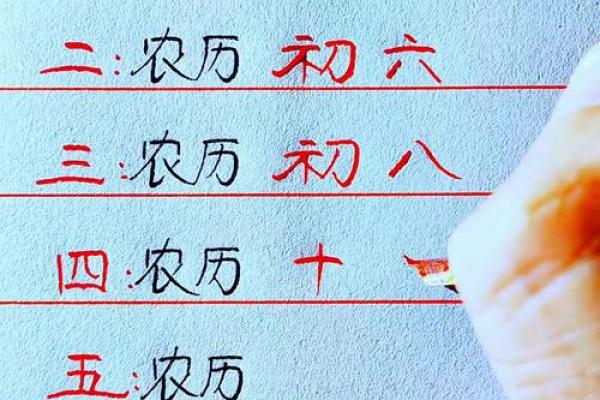 二:农历 初六
三:农历 初八
四:农历 十
五:农历